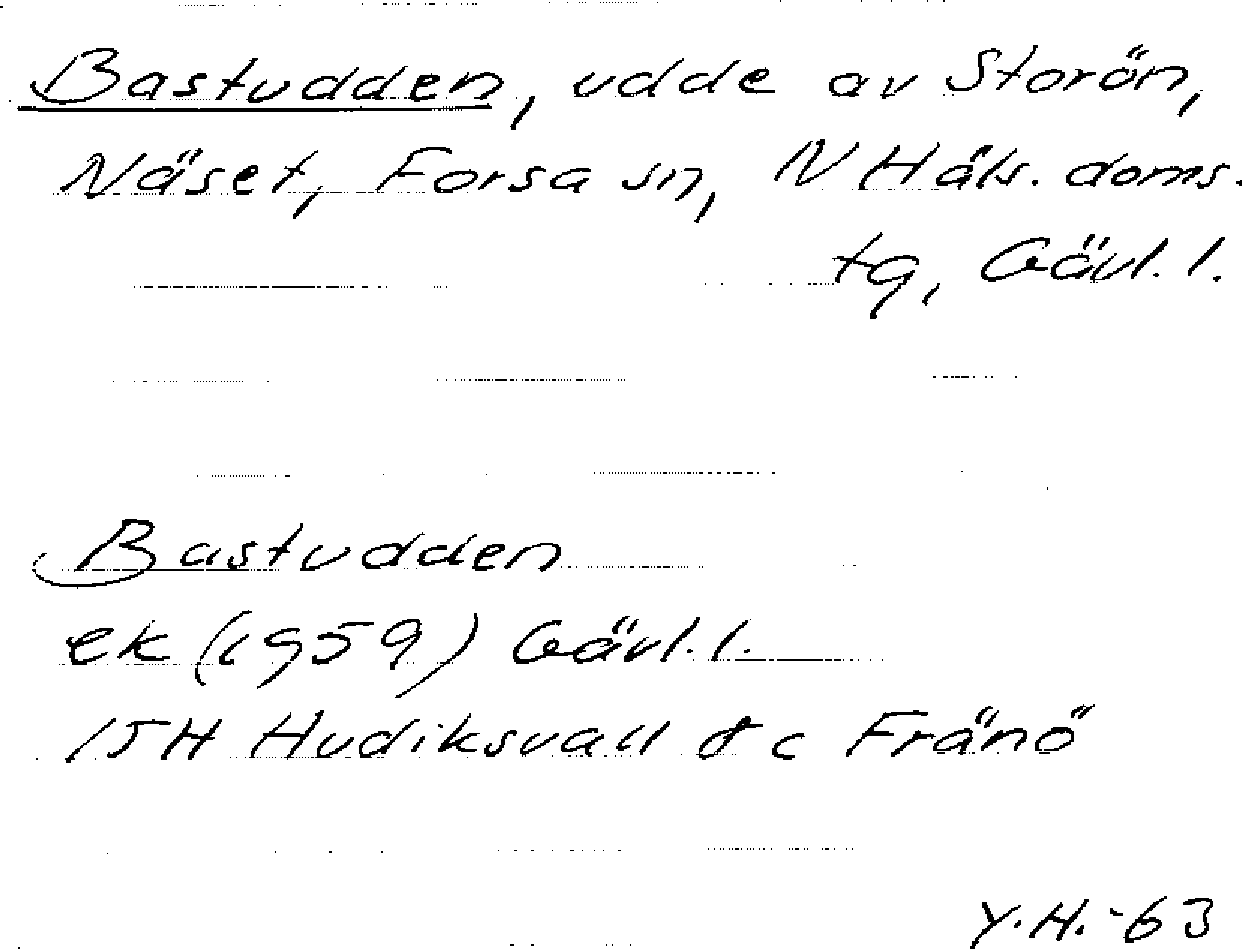 Bastudden, udde av Storön,
Näset, Forsa sn, N Häls. doms.
tg, Gävl. l.
Bastudden
ek (1959) Gävl. l.
15H Hudiksvall 8c Fränö
Y.H.-63